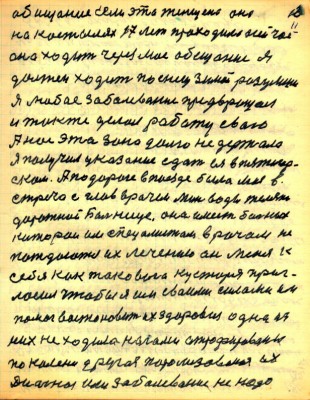 обищание если эта женщена она
на костылях 17 лет проходила и сичас
она ходит через мое обещание я
должен ходить по снегу зимой разумиши
Я любое заболевание предвращал
и также делал работу сваю
А мое эта зано долго не держало
Я получил указание сдатся в пятигор-
ском. А по дороге в поезде была моя в-
стреча с глав врачом мин воды железн
дорожной больнице, она имеет больных
которои им специалистам врачам не
поддоются их лечению он меня к
себя как таковога кустаря приг-
ласил чтобы я им сваими силами им
помог востоновить их здоровия одна из
них не ходила ногами отрофированы
по колени другая порализована их
диагноз или заболевание не надо